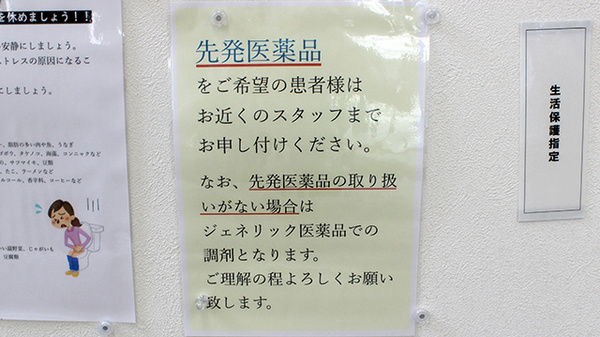 を休めましょう！！
安静にしましょう。
ストレスの原因になるこ
にしましょう。
、脂肪の多い肉や魚、うなぎ
ゴボウ、タケノコ、海藻、コンニャクなど
サツマイモ、豆類
、たこ、ラーメンなど
ルコール、香辛料、コーヒーなど
い緑野菜、じゃがいも
豆腐類
先発医薬品
をご希望の患者様は
お近くのスタッフまで
お申し付けください。
なお、先発医薬品の取り扱
いがない場合は
ジェネリック医薬品での
調剤となります。
ご理解の程よろしくお願い
致します。
生活保護指定